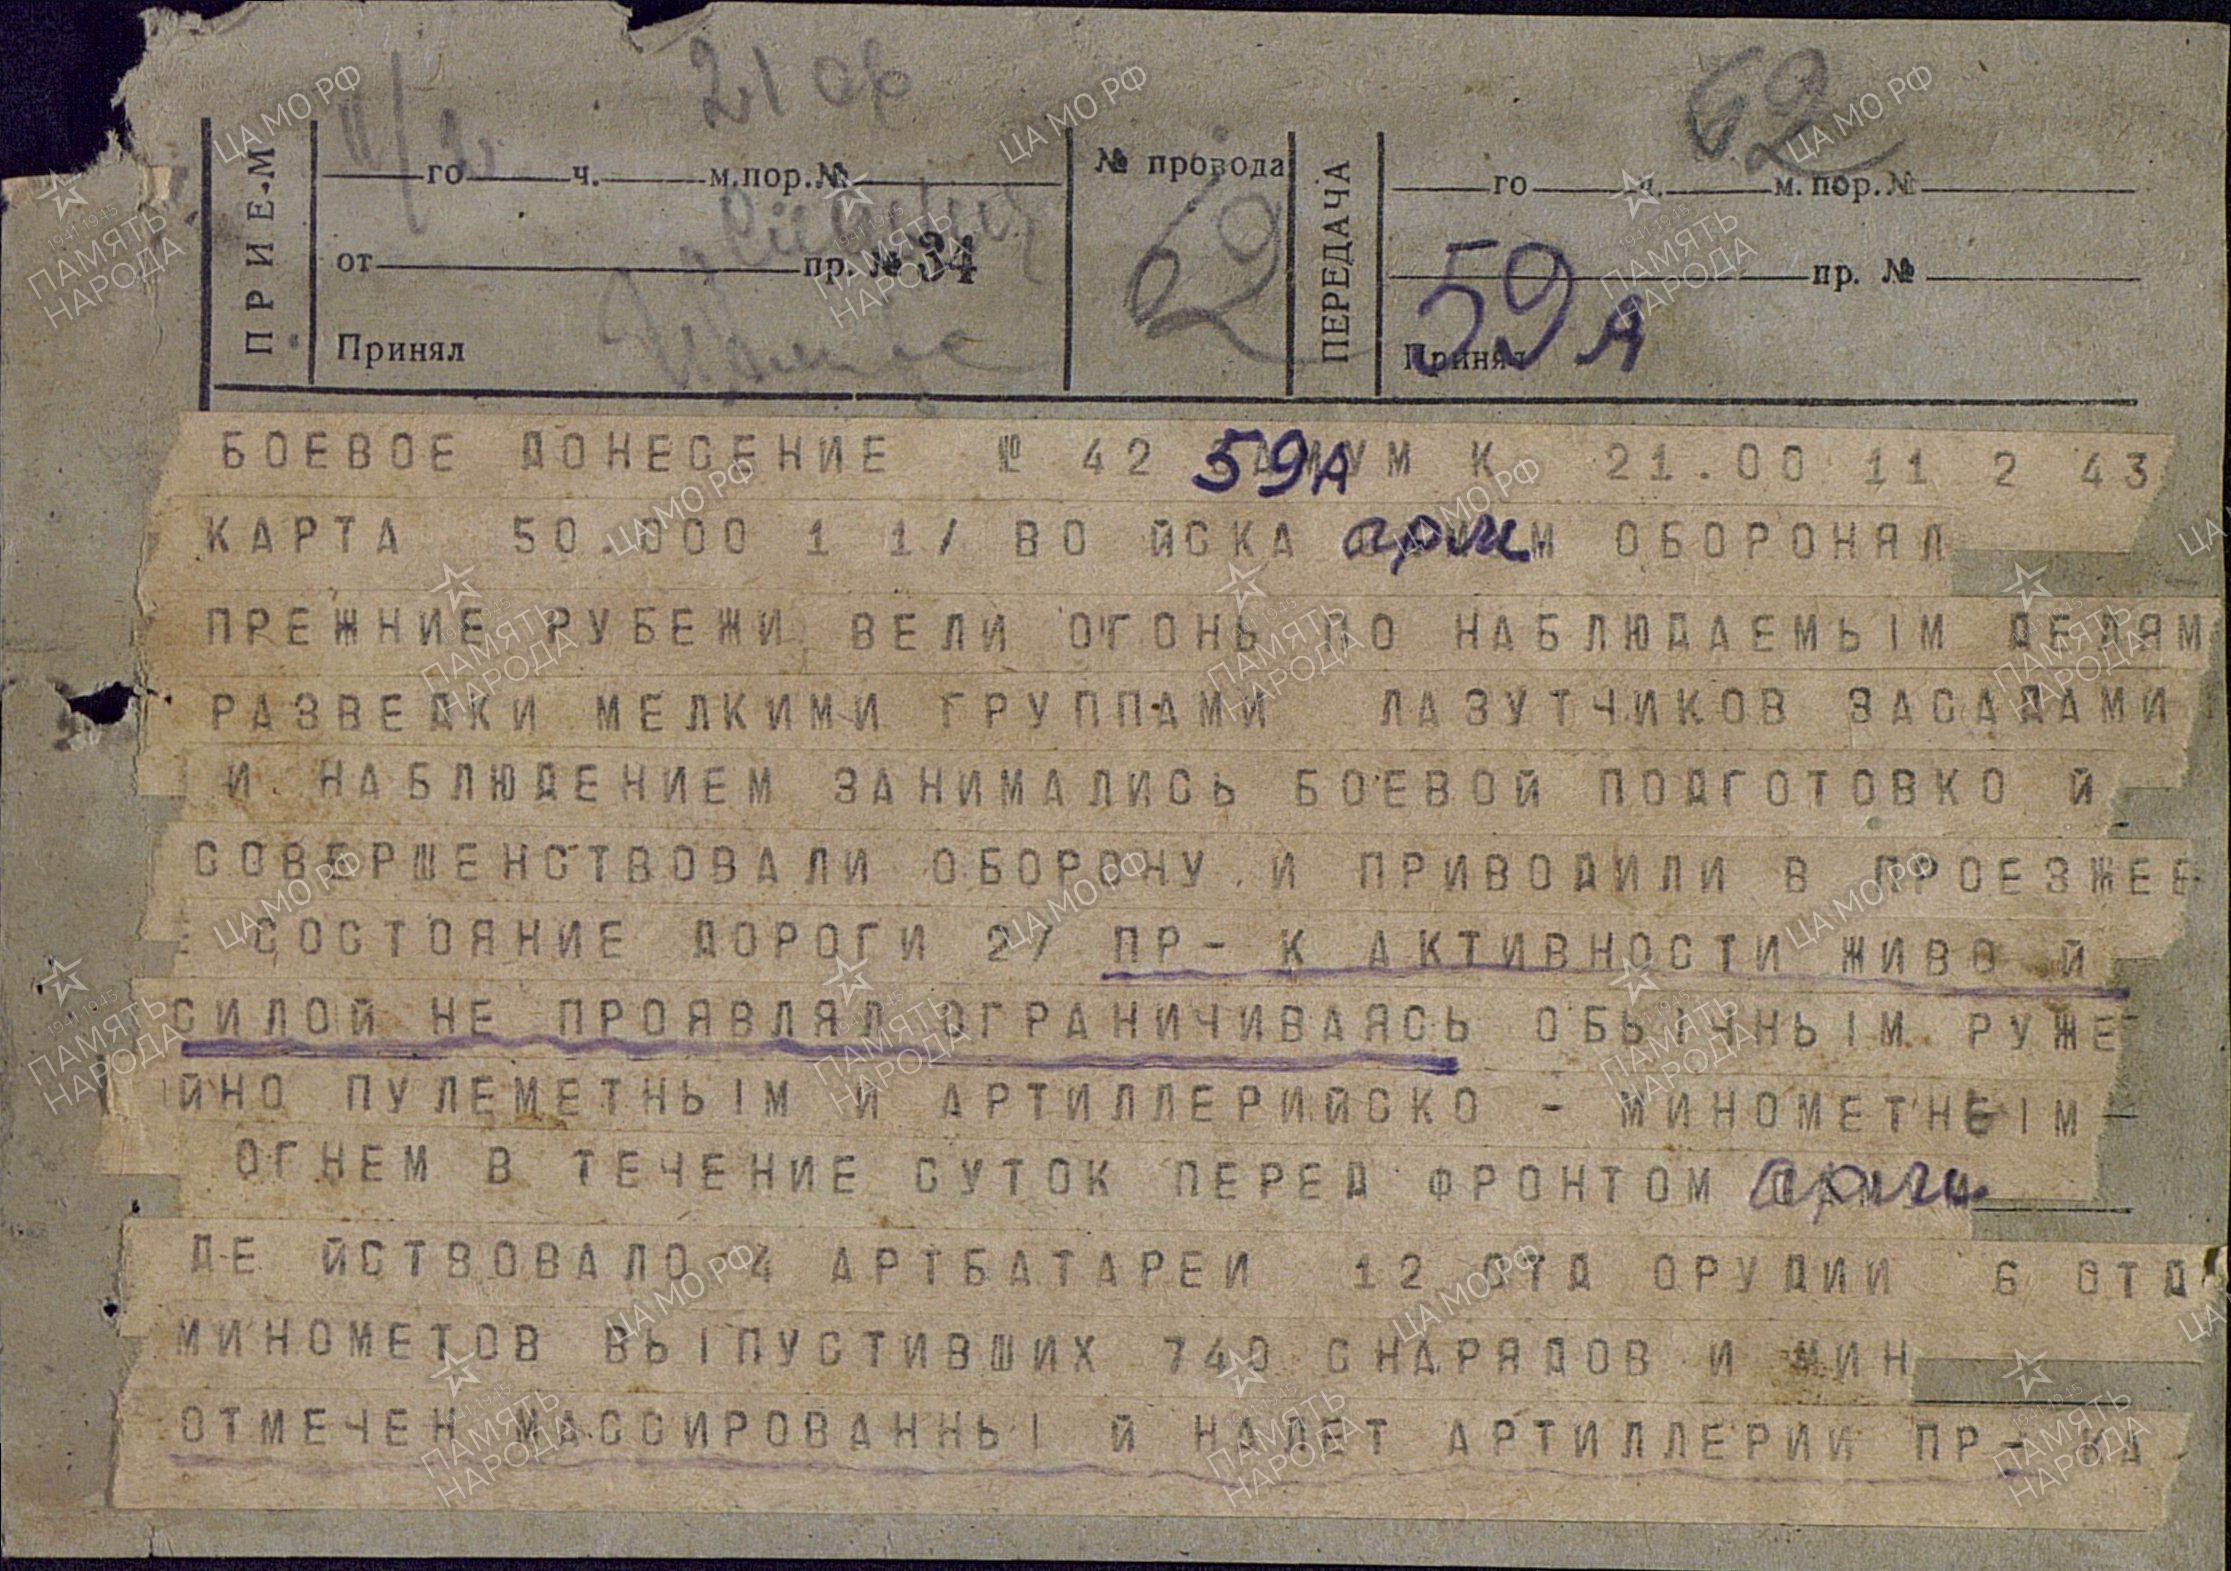 21
62
ПРИЕ-М
го ч. м.пор.№
от пр. № 34
Принял
№ провода
62
ПЕРЕДАЧА
го ч. м. пор.№
пр. №
Принял
59А
БОЕВОЕ ДОНЕСЕНИЕ № 42 59А К 21.00 11 2 43
КАРТА 50.000 1 1/ ВО ЙСКА арм ОБОРОНЯЛ
ПРЕЖНИЕ РУБЕЖИ ВЕЛИ ОГОНЬ ПО НАБЛЮДАЕМЫМ ЦЕЛЯМ
РАЗВЕДКИ МЕЛКИМИ ГРУППАМИ ЛАЗУТЧИКОВ ЗАСАДАМИ
И НАБЛЮДЕНИЕМ ЗАНИМАЛИСЬ БОЕВОЙ ПОДГОТОВКО Й
СОВЕРШЕНСТВОВАЛИ ОБОРОНУ И ПРИВОДИЛИ В ПРОЕЗЖЕЕ
СОСТОЯНИЕ ДОРОГИ 2/ ПР- К АКТИВНОСТИ ЖИВО Й
СИЛОЙ НЕ ПРОЯВЛЯЛ ОГРАНИЧИВАЯСЬ ОБЫЧНЫМ РУЖЕ
ЙНО ПУЛЕМЕТНЫМ И АРТИЛЛЕРИЙСКО - МИНОМЕТНЫМ
ОГНЕМ В ТЕЧЕНИЕ СУТОК ПЕРЕД ФРОНТОМ арми
ДЕ ЙСТВОВАЛО 4 АРТБАТАРЕИ 12 ОТД ОРУДИИ 6 ОТД
МИНОМЕТОВ ВЫПУСТИВШИХ 740 СНАРЯДОВ И МИН
ОТМЕЧЕН МАССИРОВАННЫ Й НАЛЕТ АРТИЛЛЕРИИ ПР- КА
ЦА МО РФ
ПАМЯТЬ НАРОДА